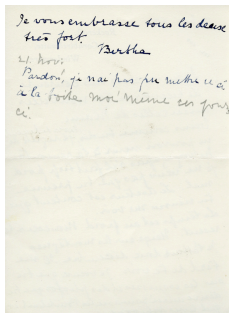 Je vous embrasse tous les deux
très fort.
Bertha
21 Nov.
Pardon, je n'ai pas pu mettre ceci
à la boîte moi même ces jours
ci.